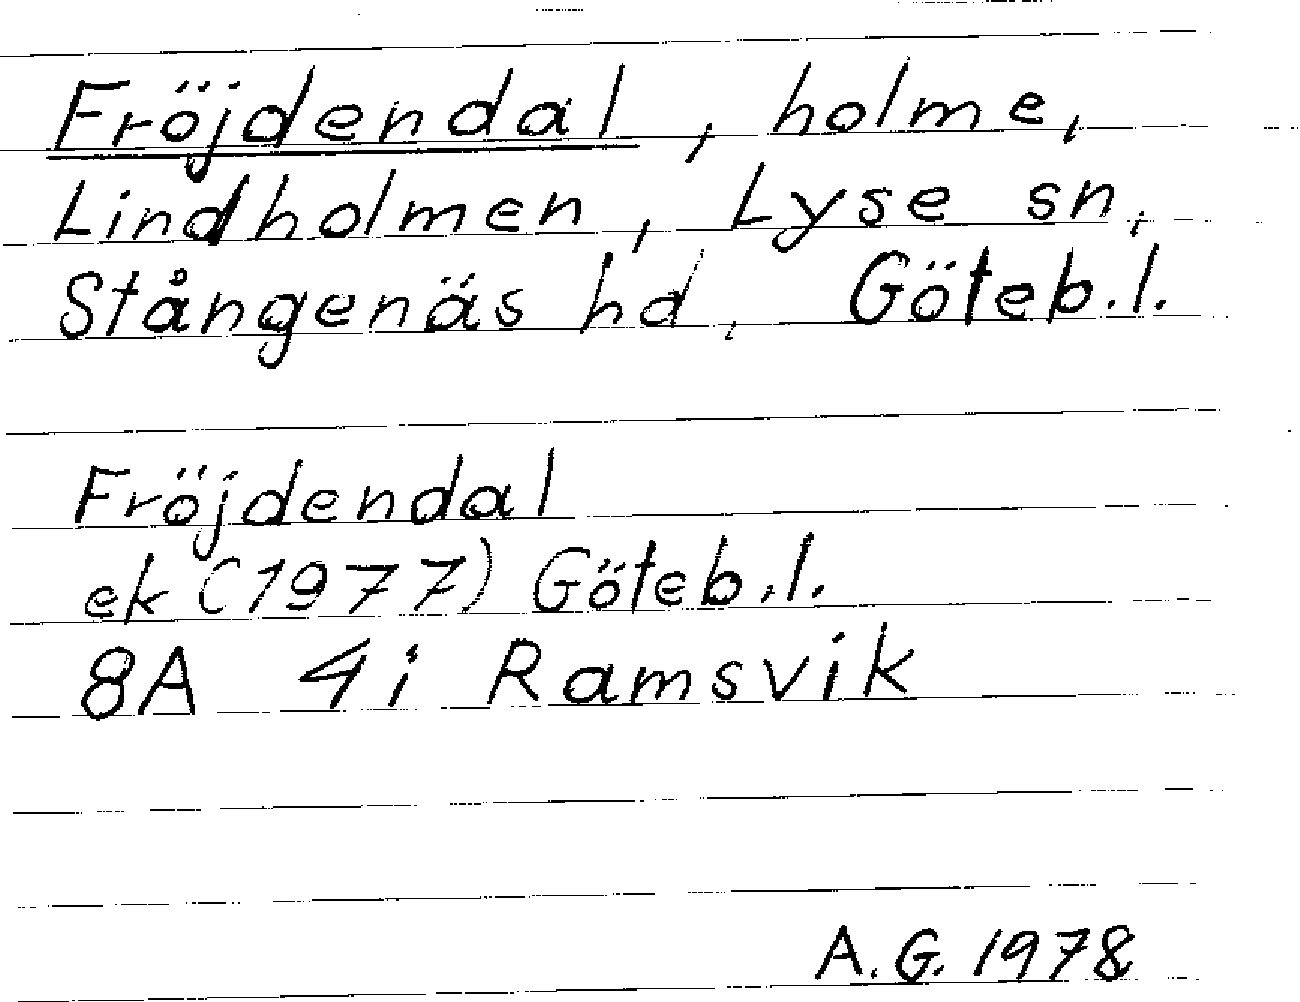 Fröjdendal, holme,
Lindholmen, Lyse sn,
Stångenäs hd, Göteb.l.
Fröjdendal
ek (1977) Göteb.l.
8A 4i Ramsvik
A.G. 1978